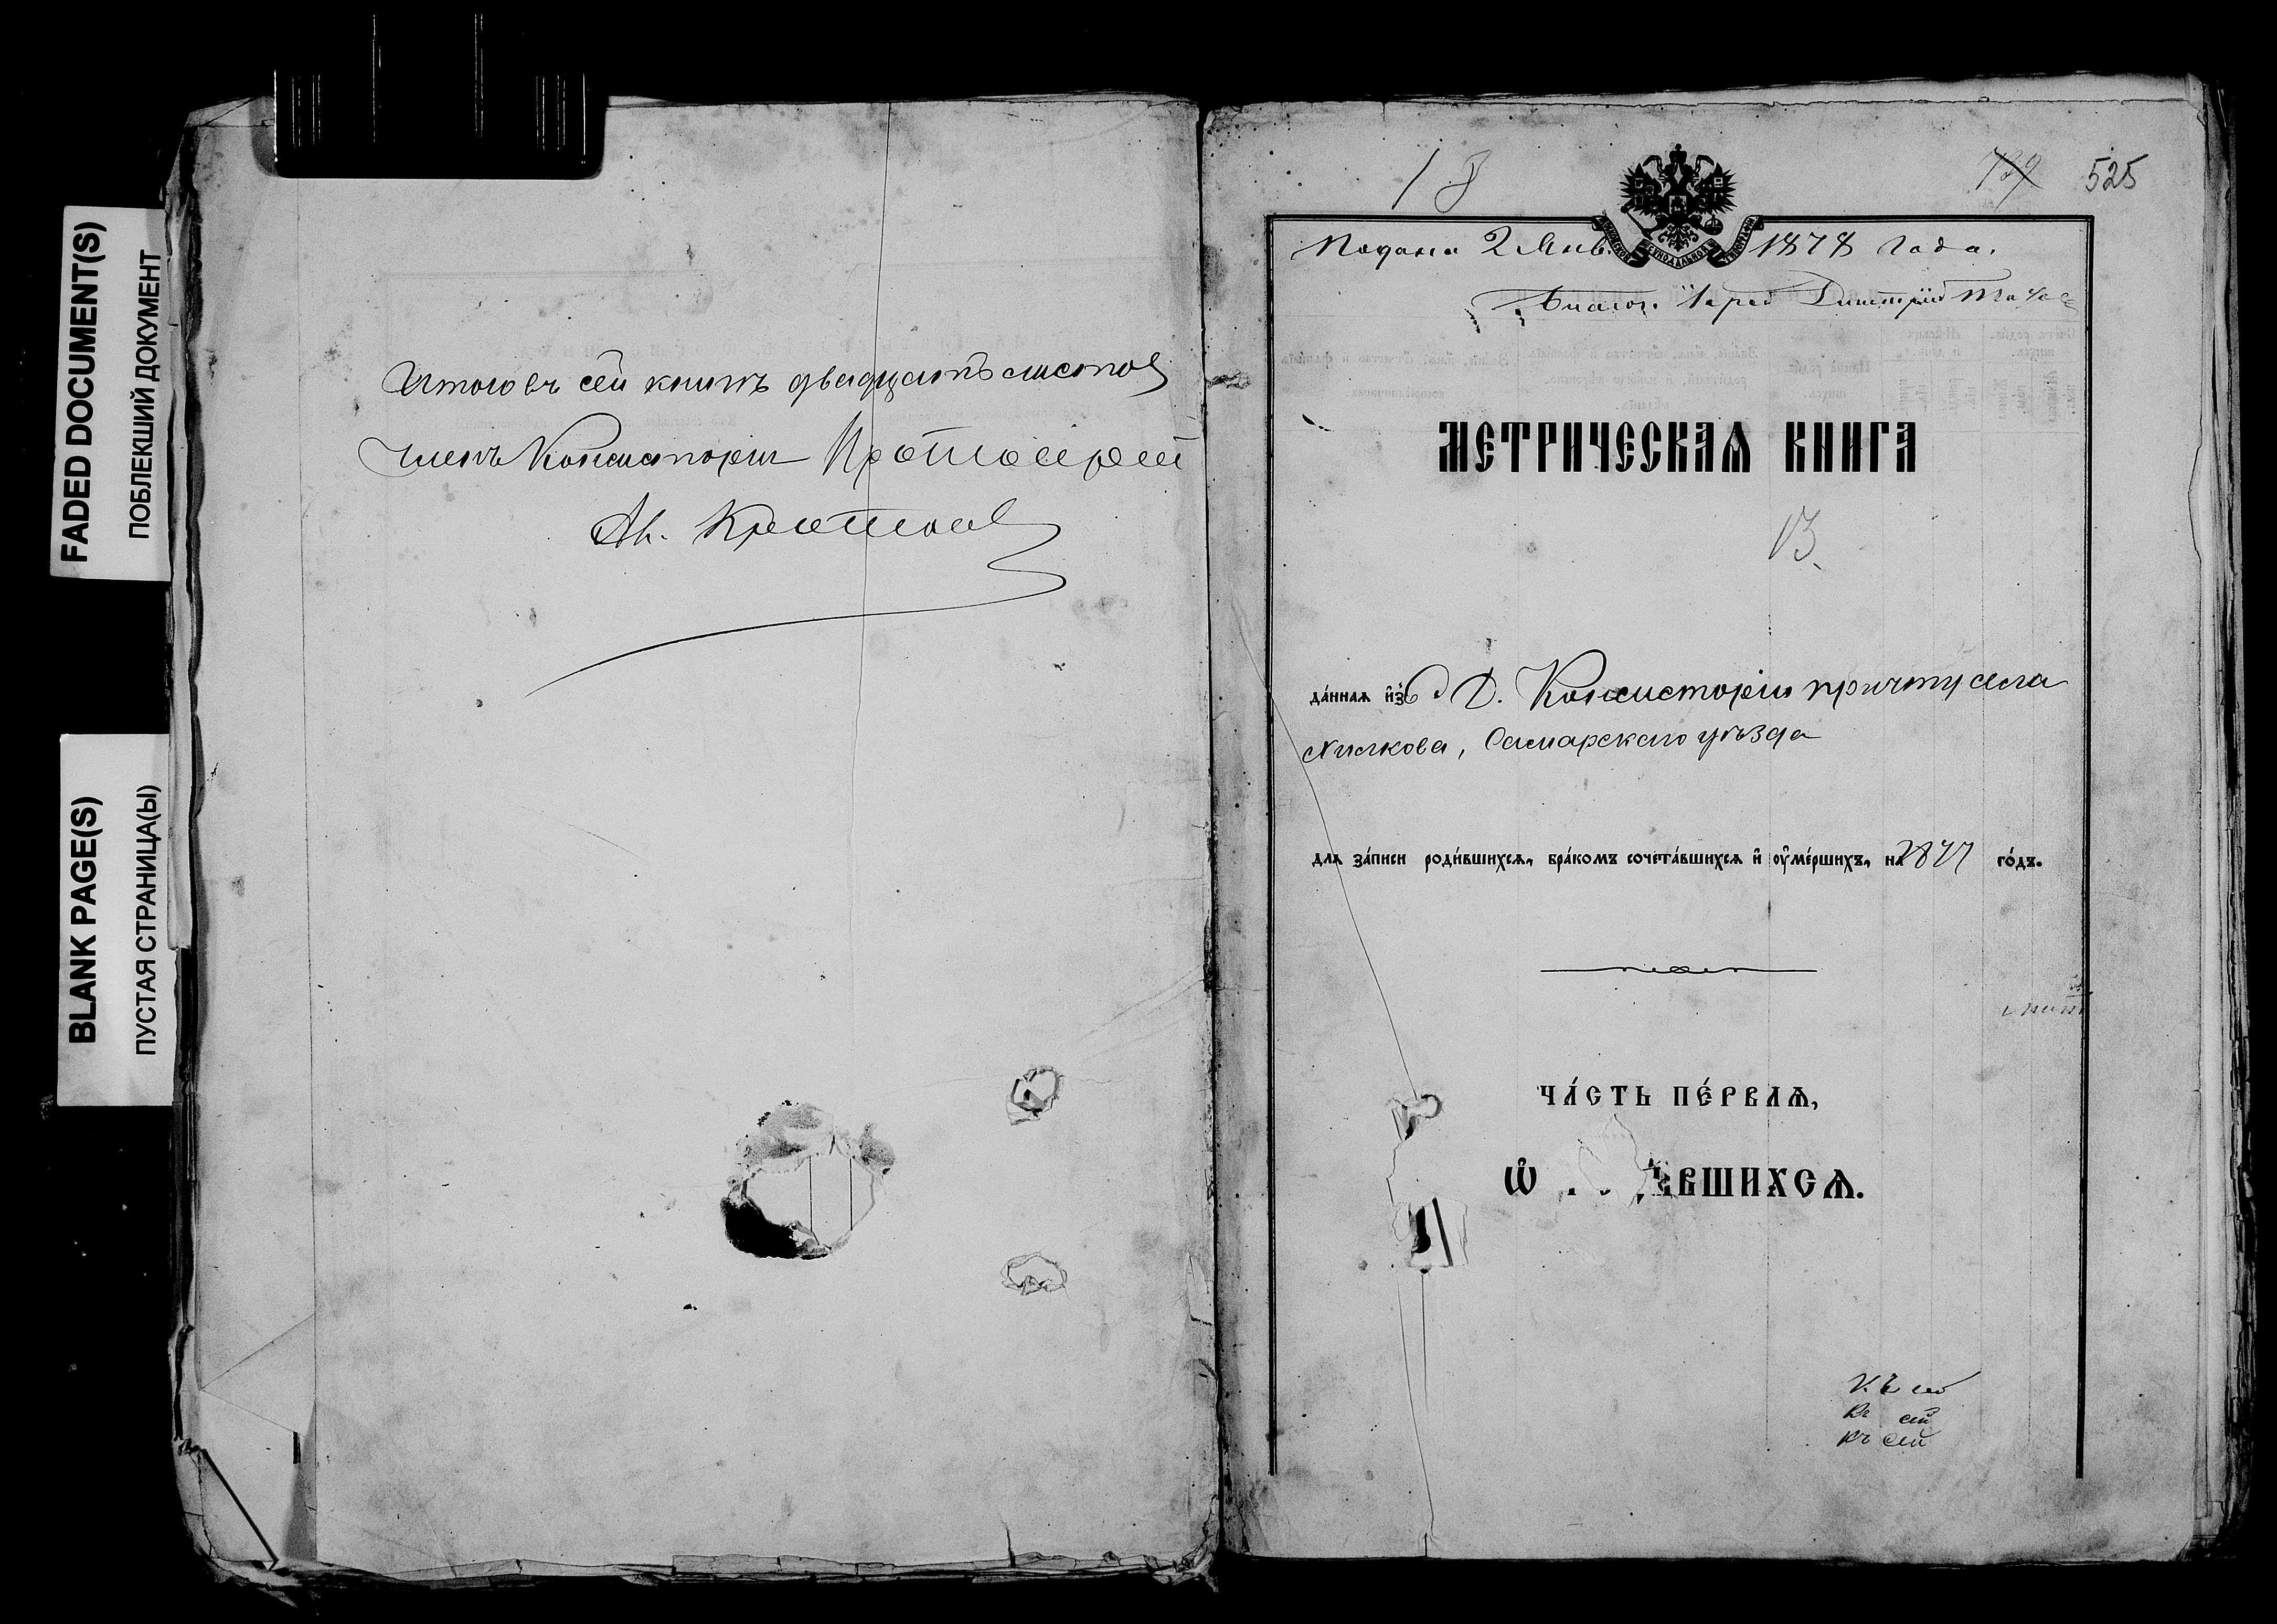 FADED DOCUMENT(S)
ПОБЛЕКШИЙ ДОКУМЕНТ
BLANK PAGE(S)
ПУСТАЯ СТРАНИЦА(Ы)
Итого въ сей книгѣ двадцать листовъ
Членъ Консисторіи Протоіерей
18
139 525
Подана 2 Янв. 1878 Года.
Благоч. Іерей Димитрій
МЕТРИЧЕСКАѦ КНИГА
13.
да́ннаѧ и҆з Д. Консисторіи причту села
Хилкова, Самарскаго уѣзда
длѧ за́писи роди́вшихсѧ, бра́комъ сочета́вшихсѧ и҆ оу҆ме́ршихъ, на 1877 го́дъ.
ЧА́СТЬ ПЕ́РВАѦ,
Ѡ҆ ВШИХСѦ.
Къ сей
Къ сей
Къ сей